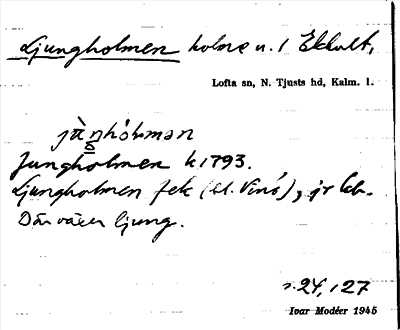 Ljungholmen holme u. 1 Ekhult,
Lofta sn, N. Tjusts hd, Kalm. l.
Jungholmen k 1793.
Ljungholmen fek (ä. Vinö), jr
Där växer ljung.
s. 24, 127
Ivar Modéer 1945